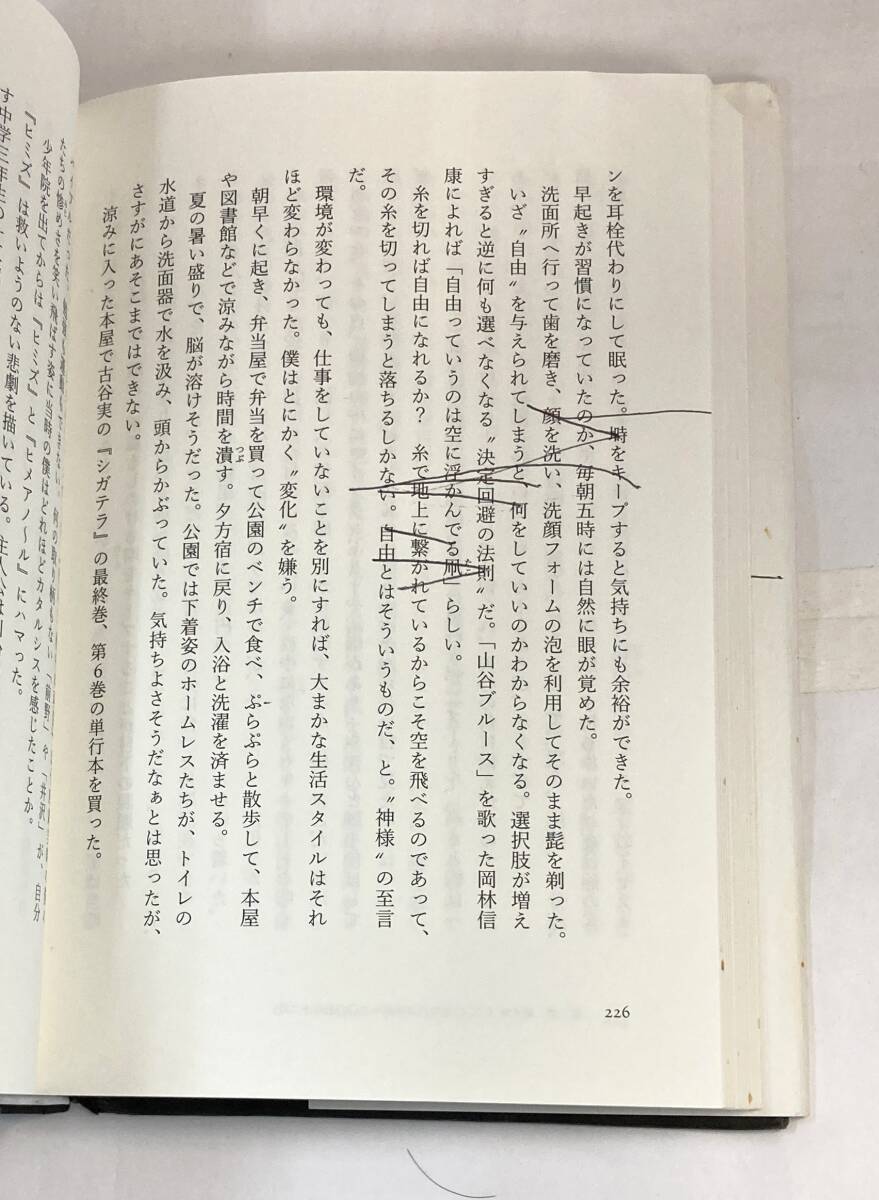 ンを耳栓代わりにして眠った。時をキープすると気持ちにも余裕ができた。
早起きが習慣になっていたのか、毎朝五時には自然に眼が覚めた。
洗面所へ行って歯を磨き、顔を洗い、洗顔フォームの泡を利用してそのまま髭を剃った。
いざ〝自由〟を与えられてしまうと、何をしていいのかわからなくなる。選択肢が増え
すぎると逆に何も選べなくなる〝決定回避の法則〟だ。「山谷ブルース」を歌った岡林信
康によれば「自由っていうのは空に浮かんでる凧」らしい。
糸を切れば自由になれるか？ 糸で地上に繋がれているからこそ空を飛べるのであって、
その糸を切ってしまうと落ちるしかない。自由とはそういうものだ、と。〝神様〟の至言
だ。
環境が変わっても、仕事をしていないことを別にすれば、大まかな生活スタイルはそれ
ほど変わらなかった。僕はとにかく〝変化〟を嫌う。
朝早くに起き、弁当屋で弁当を買って公園のベンチで食べ、ぷらぷらと散歩して、本屋
や図書館などで涼みながら時間を潰す。夕方宿に戻り、入浴と洗濯を済ませる。
つぶ
夏の暑い盛りで、脳が溶けそうだった。公園では下着姿のホームレスたちが、トイレの
水道から洗面器で水を汲み、頭からかぶっていた。気持ちよさそうだなぁとは思ったが、
さすがにあそこまではできない。
涼みに入った本屋で古谷実の『シガテラ』の最終巻、第6巻の単行本を買った。
226
たちの惨めさを笑い飛ばす姿に当時の僕はどれほどカタルシスを感じたことか。
少年院を出てからは『ヒミズ』と『ヒメアノ～ル』にハマった。
『ヒミズ』は救いようのない悲劇を描いている。主人公は
す中学三年生の